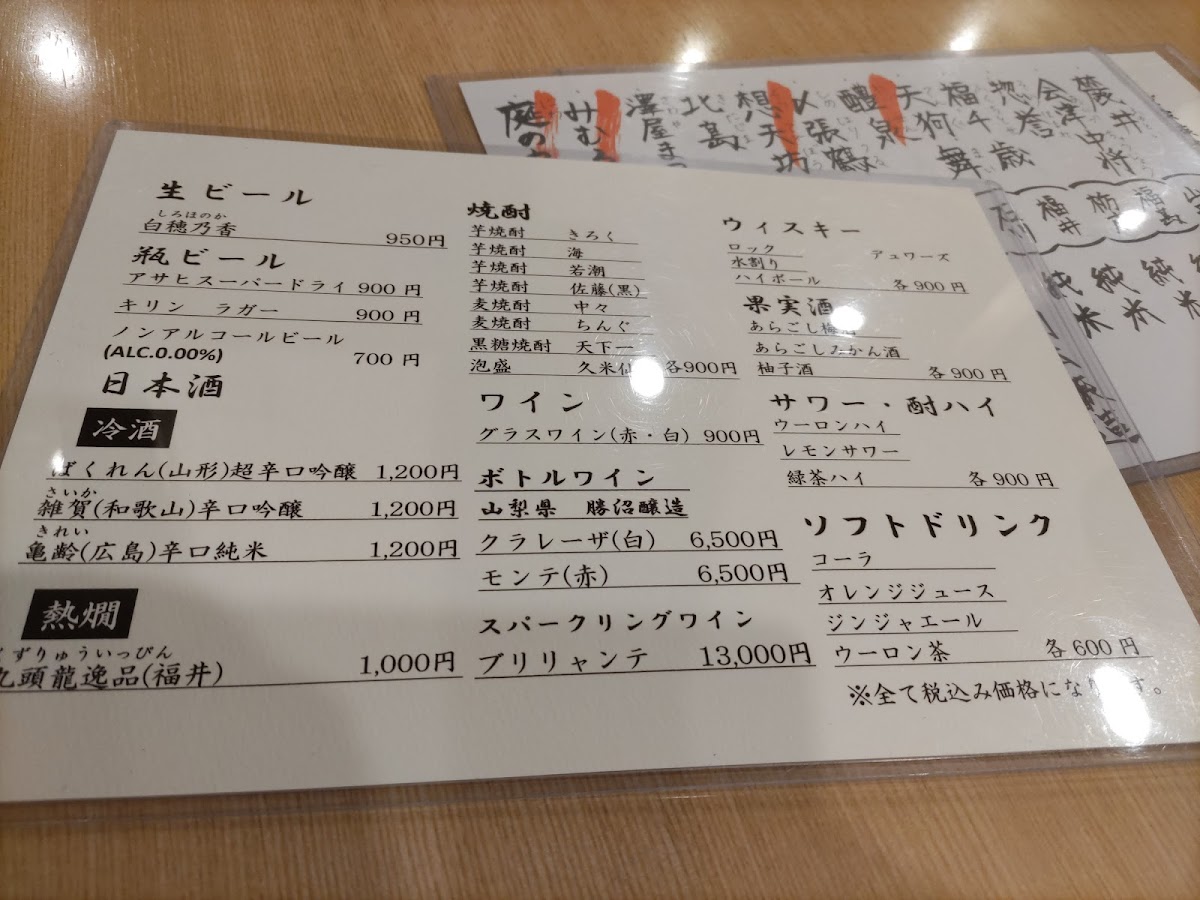 生ビール
しろほのか
白穂乃香 950円
瓶ビール
アサヒスーパードライ 900 円
キリン ラガー 900 円
ノンアルコールビール
(ALC.0.00%) 700 円
日本酒
冷酒
ばくれん(山形)超辛口吟醸 1,200円
さいか
雑賀(和歌山)辛口吟醸 1,200円
きれい
亀齢(広島)辛口純米 1,200円
熱燗
くずりゅういっぴん
九頭龍逸品(福井) 1,000円
焼酎
芋焼酎 きろく
芋焼酎 海
芋焼酎 若潮
芋焼酎 佐藤(黒)
麦焼酎 中々
麦焼酎 ちんぐ
黒糖焼酎 天下一
泡盛 久米仙 各900円
ワイン
グラスワイン(赤・白) 900円
ボトルワイン
山梨県 勝沼醸造
クラレーザ(白) 6,500円
モンテ(赤) 6,500円
スパークリングワイン
ブリリャンテ 13,000円
ウィスキー
ロック
水割り デュワーズ
ハイボール 各900円
果実酒
あらごし梅酒
あらごしみかん酒
柚子酒 各900円
サワー・酎ハイ
ウーロンハイ
レモンサワー
緑茶ハイ 各900円
ソフトドリンク
コーラ
オレンジジュース
ジンジャエール
ウーロン茶 各600円
※全て税込み価格になります。
磯井中将
会津誉
惣誉
福千歳
天狗舞
醴泉
〆張鶴
想天坊
北島
澤屋まつ
みむろ
庭の
山
福島
栃
福井
石川
純米
純米
純米
純米